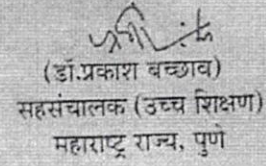 (डॉ.प्रकाश बच्छाव)
सहसंचालक (उच्च शिक्षण)
महाराष्ट्र राज्य, पुणे